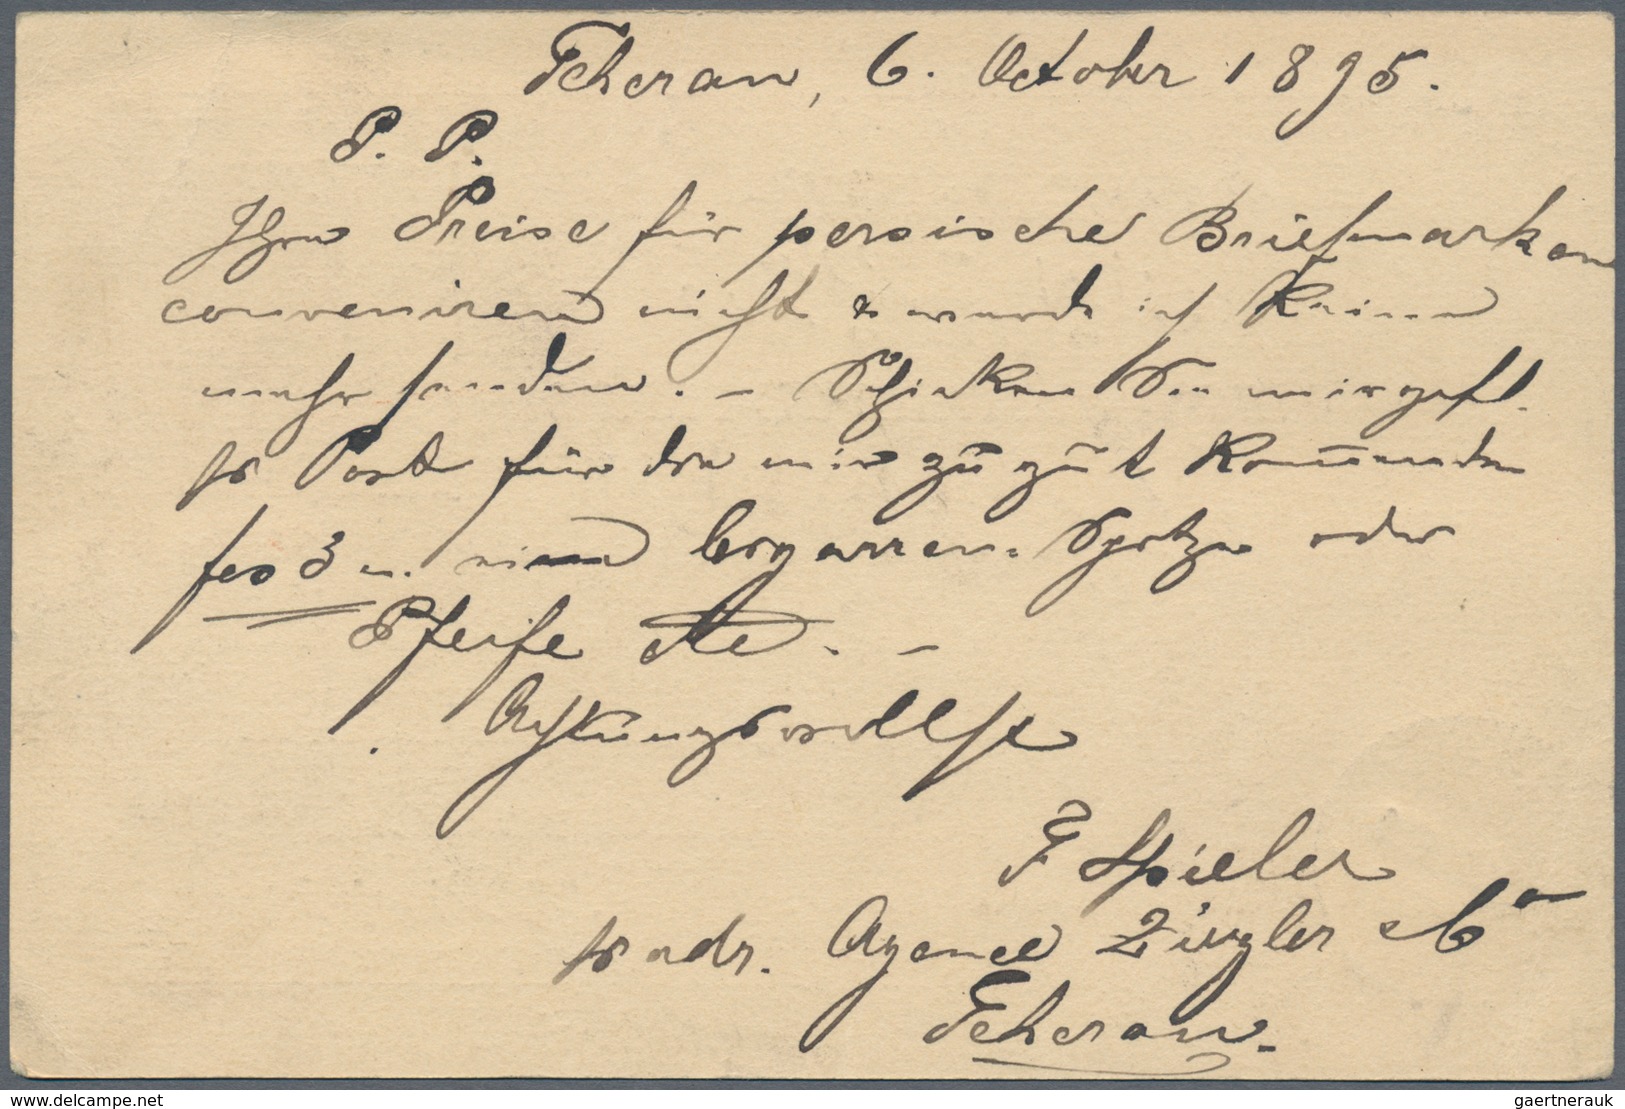 Teheran, 6. October 1895.
P. P.
Ihre Preise für persische Briefmarken
conveniren nicht & werde ich keine
mehr senden. – Schicken Sie mir gefl.
pr Post für die mir zu gut kommenden
fcs 3 u. eine Cigarren-Spitze oder
Pfeife etc. –
Achtungsvollst
F Spieler
pr adr. Agence Ziegler & Co
Teheran.
delcampe.net
gaertnerauk